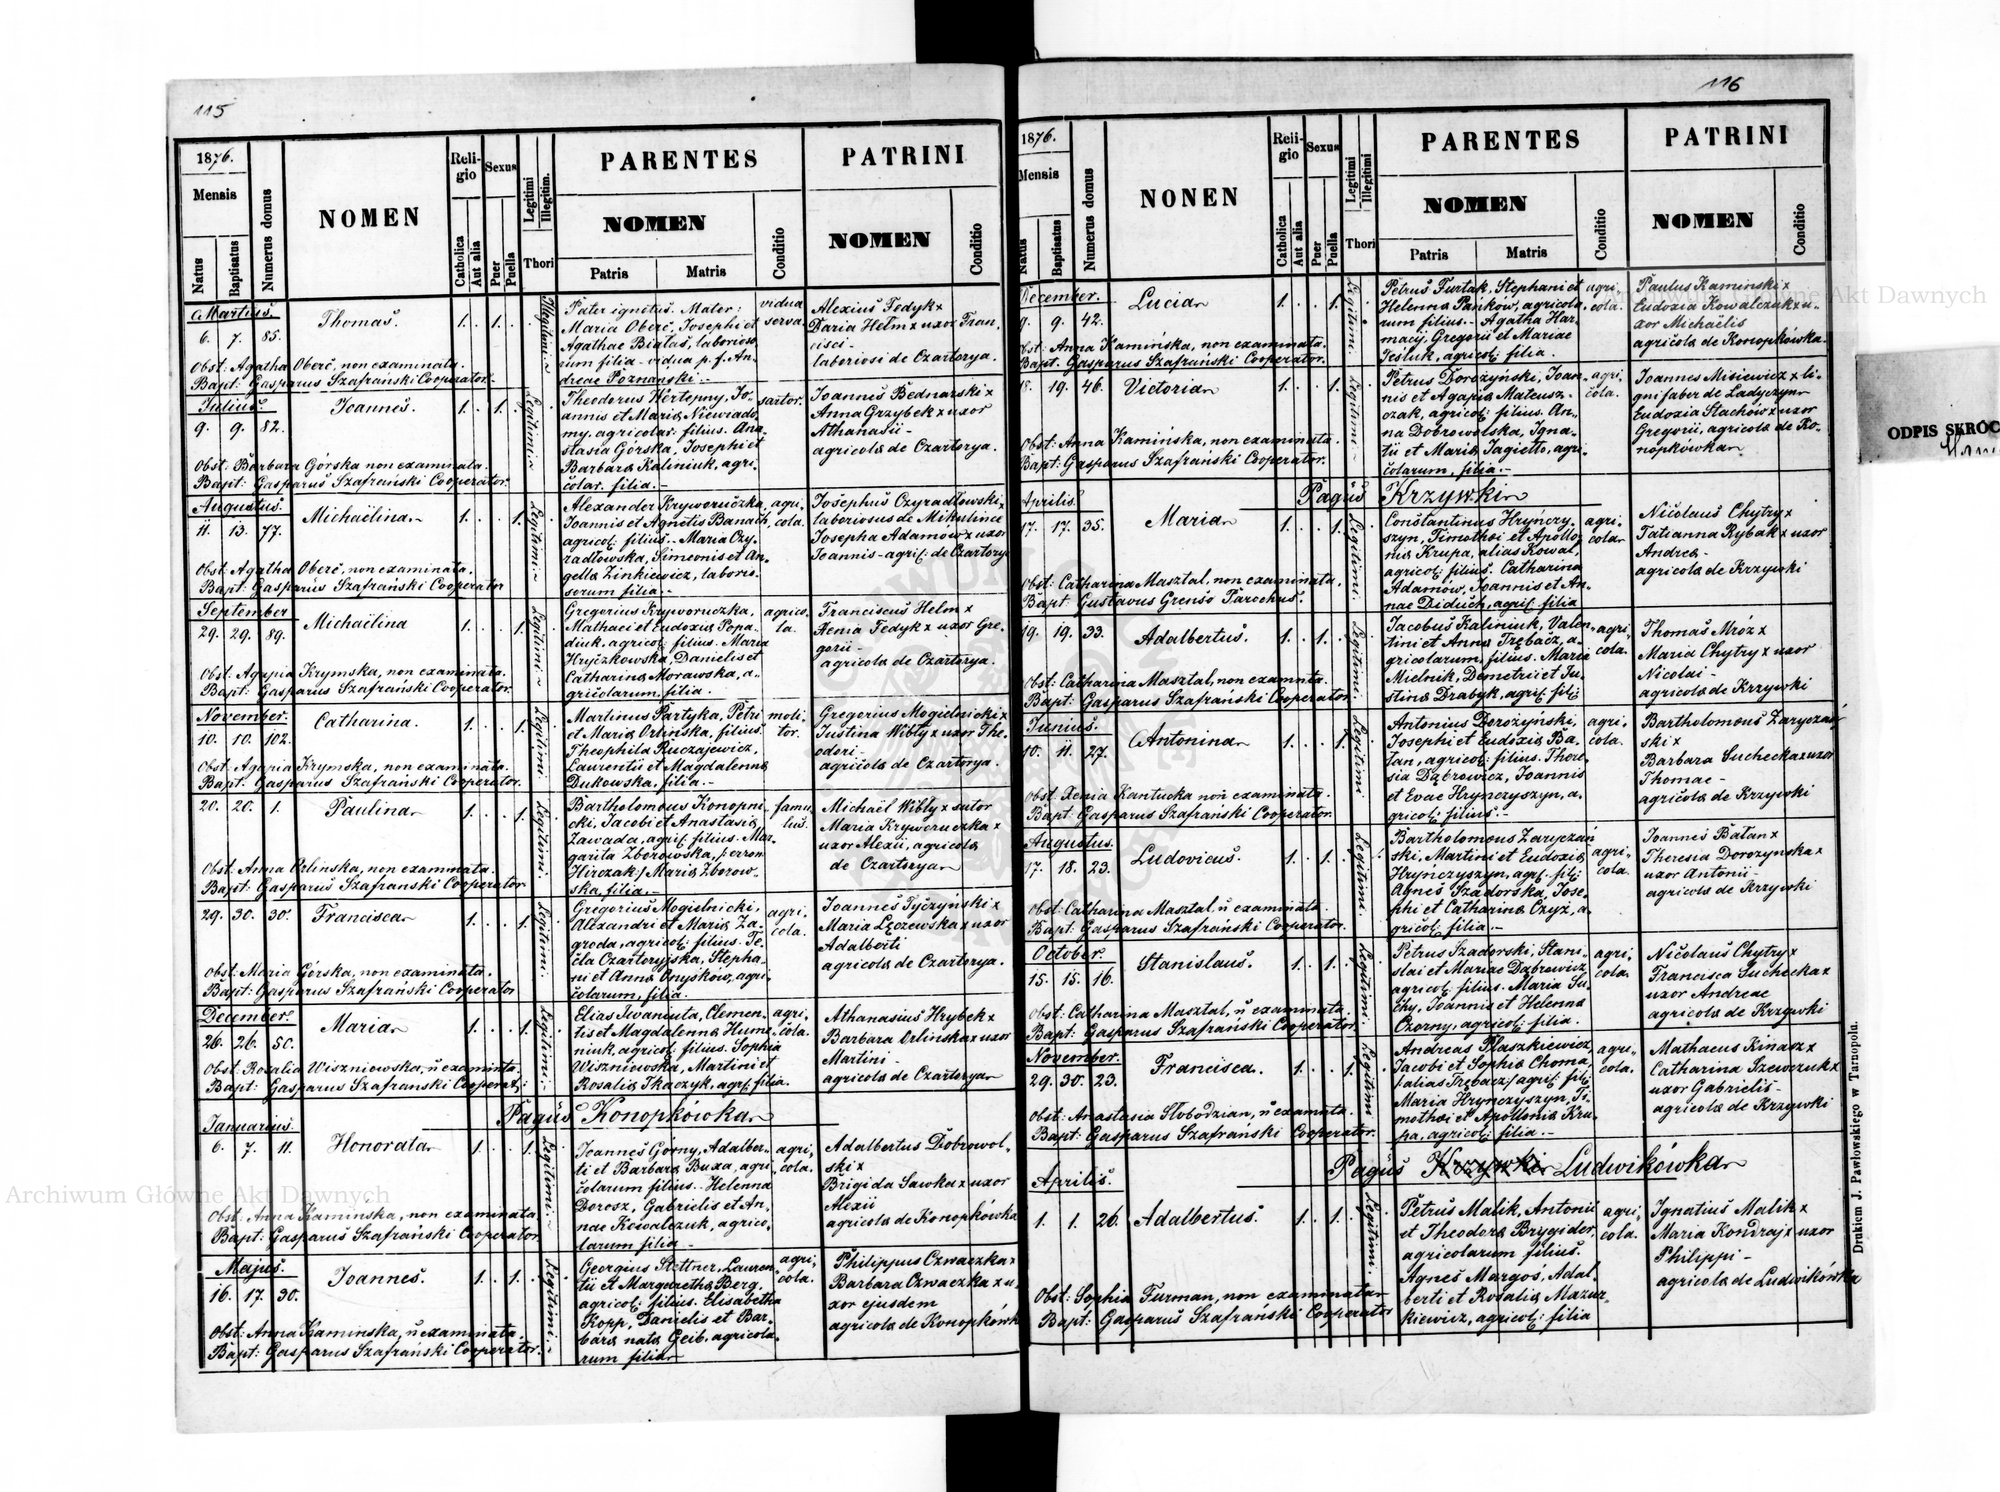 115
1876.
Mensis
Natus
Baptisatus
Numerus domus
NOMEN
Religio
Catholica
Aut alia
Sexus
Puer
Puella
Legitimi
Illegitim.
Thori
PARENTES
NOMEN
Patris
Matris
Conditio
PATRINI
NOMEN
Conditio
Martius.
6. 7. 85. Thomas. 1. 1. Illegitimi
Pater ignotus. Mater:
Maria Oberc, Josephi et
Agathae Białas, laborioso
rum filia - vidua p. f. An-
dreae Poznański.
vidua
serva
Alexius Fedyk x
Daria Helm x uxor Fran-
cisci -
laboriosi de Czartorya.
Obst: Agatha Oberc, non examinata.
Bapt: Gasparus Szafrański Cooperator.
Julius.
9. 9. 82. Joannes. 1. 1. Legitimi
Theodorus Wertepny, Jo-
annis et Maria Niewiado
my, agricolar: filius. Ana-
stasia Górska, Josephi et
Barbara Kaliniuk, agri-
colar. filia.
sartor.
Joannes Bednarski x
Anna Grzybek x uxor
Athanasii -
agricola de Czartorya.
Obst: Barbara Górska non examinata.
Bapt: Gasparus Szafrański Cooperator.
Augustus.
11. 13. 77. Michaëlina 1. 1. Legitimi
Alexander Kryworuczka,
Joannis et Agnetis Banach,
agricol: filius. Maria Czy-
radłowska, Simeonis et An-
gella Zinkiewicz, laborio-
sorum filia.
agri-
cola.
Josephus Czyradłowski x
laboriosus de Mikulince
Josepha Adamow x uxor
Joannis - agric: de Czartorya
Obst: Agatha Oberc, non examinata.
Bapt: Gasparus Szafrański Cooperator
September
29. 29. 89. Michaëlina 1. 1. Legitimi
Gregorius Kryworuczka,
Mathaei et Eudoxia Popa-
diuk, agricol: filius. Maria
Hryczkowska, Danielis et
Catharina Morawska, a-
gricolarum, filia.
agrico-
la.
Franciscus Helm x
Xenia Fedyk x uxor Gre-
gorii -
agricola de Czartorya.
Obst: Agapia Krymska, non examinata.
Bapt: Gasparus Szafrański Cooperator.
November.
10. 10. 102. Catharina. 1. 1. Legitimi
Martinus Partyka, Petri
et Maria Orlinska, filius.
Theophila Ruczajewicz,
Laurentii et Magdalenna
Dukowska, filia.
moli-
tor.
Gregorius Mogielnicki x
Justina Wibły x uxor The-
odori -
agricola de Czartorya.
Obst: Agapia Krymska, non examinata.
Bapt: Gasparus Szafrański Cooperator.
20. 20. 1. Paulina 1. 1. Legitimi
Bartholomeus Konopni-
cki, Jacobi et Anastasia
Zawada, agric: filius. Mar-
garita Zborowska, /: errone
Hirczak:/ Maria Zborow-
ska, filia.
famu-
lus.
Michaël Wibły x sutor
Maria Kryworuczka x
uxor Alexii, agricola
de Czartorya
Obst: Anna Orlinska, non examinata.
Bapt: Gasparus Szafrański Cooperator
29. 30. 30. Francisca 1. 1. Legitimi
Gregorius Mogielnicki,
Alexandri et Maria Za-
groda, agricol: filius. Te-
cla Czartoryjska, Stepha-
ni et Anna Onysków, agri-
colarum, filia.
agri-
cola.
Joannes Tyczyński x
Maria Łęczewska x uxor
Adalberti
agricola de Czartorya.
Obst: Maria Górska, non examinata.
Bapt: Gasparus Szafrański Cooperator
December
26. 26. 50. Maria 1. 1. Legitimi
Elias Iwaniuta, Clemen-
tis et Magdalenna Hume-
niuk, agricol: filius. Sophia
Wiszniowska, Martini et
Rosalia Tkaczyk, agri: filia.
agri-
cola.
Athanasius Hrybek x
Barbara Orlinska x uxor
Martini -
agricola de Czartorya
Obst: Rosalia Wiszniowska, n examinata.
Bapt: Gasparus Szafranski Cooperat:
Pagus Konopkówka
Januarius.
6. 7. 11. Honorata 1. 1. Legitimi
Joannes Górny, Adalber-
ti et Barbara Buxa, agri-
colarum filius. Helenna
Dorosz, Gabrielis et An-
nae Kowalczuk, agrico-
larum filia
agri-
cola.
Adalbertus Dobrowol-
ski x
Brigida Sawka x uxor
Alexii
agricola de Konopkówka
Obst: Anna Kaminska, non examinata.
Bapt: Gasparus Szafrański Cooperator.
Majus.
16. 17. 30. Joannes. 1. 1. Legitimi
Georgius Stettner, Lauren-
tii et Margaretha Berg,
agricol: filius. Elisabetha
Kopp, Danielis et Bar-
bara nata Geib, agricola-
rum filia
agri-
cola.
Philippus Czwaczka x
Barbara Czwaczka x u-
xor ejusdem
agricola de Konopkówka
Obst: Anna Kaminska, n examinata.
Bapt: Gasparus Szafranski Cooperator.
116
1876.
Mensis
Natus
Baptisatus
Numerus domus
NONEN
Religio
Catholica
Aut alia
Sexus
Puer
Puella
Legitimi
Illegitimi
Thori
PARENTES
NOMEN
Patris
Matris
Conditio
PATRINI
NOMEN
Conditio
December.
9. 9. 42. Lucia 1. 1. Legitimi
Petrus Furtak, Stephani et
Helenna Pańków, agricola-
rum filius. - Agatha Har-
macij, Gregorii et Mariae
Jesluk, agricol: filia.
agri-
cola.
Paulus Kaminski x
Eudoxia Kowalczuk x u-
xor Michaëlis
agricola de Konopkówka.
Obst: Anna Kamińska, non examinata.
Bapt: Gasparus Szafrański Cooperator.
18. 19. 46. Victoria 1. 1. Legitimi
Petrus Dorożyński, Joan-
nis et Agapia Mateusz-
czak, agricol: filius. An-
na Dobrowolska, Igna-
tii et Maria Jagiełło, agri-
colarum, filia.
agri-
cola.
Joannes Misiewicz x li-
gni faber de Ladyczyn
Eudoxia Stachów x uxor
Gregorii, agricola de Ko-
nopkówka
Obst: Anna Kamińska, non examinata.
Bapt: Gasparus Szafrański Cooperator.
Pagus Krzywki
Aprilis.
17. 17. 35. Maria 1. 1. Legitimi
Constantinus Hryńczy-
szyn, Timothei et Apollo-
nia Krupa, alias Kowal,
agricol: filius. Catharina
Adamów, Joannis et An-
nae Diduch, agric: filia
agri-
cola
Nicolaus Chytry x
Tatianna Rybak x uxor
Andrea -
agricola de Krzywki
Obst: Catharina Masztal, non examinata.
Bapt: Gustavus Grenso Parochus.
19. 19. 33. Adalbertus. 1. 1. Legitimi
Jacobus Kaliniuk, Valen-
tini et Anna Trębacz, a-
gricolarum, filius. Maria
Mielnik, Demetrii et Ju-
stina Drabyk, agric: fil:
agri-
cola.
Thomas Mróz x
Maria Chytry x uxor
Nicolai -
agricola de Krzywki
Obst: Catharina Masztal, non examnta.
Bapt: Gasparus Szafrański Cooperator.
Junius.
10. 11. 27. Antonina 1. 1. Legitimi
Antonius Dorozyński,
Josephi et Eudoxia Ba-
tan, agricol: filius. There-
sia Dąbrowicz, Joannis
et Evae Hrynczyszyn, a-
gricol: filius.
agri-
cola.
Bartholomeus Zaryczań
ski x
Barbara Suchecka x uxor
Thomae -
agricola de Krzywki
Obst: Xenia Kantucka non examinata.
Bapt: Gasparus Szafrański Cooperator.
Augustus.
17. 18. 23. Ludovicus. 1. 1. Legitimi
Bartholomeus Zaryczań
ski, Martini et Eudoxia
Hrynczyszyn, agri: fil:
Agnes Szadorska, Jose-
phi et Catharina Czyż, a-
gricol: filia.
agri-
cola.
Joannes Batan x
Theresia Dorozynska x
uxor Antonii -
agricola de Krzywki
Obst: Catharina Masztal, n examinata.
Bapt: Gasparus Szafrański Cooperator.
October.
15. 15. 16. Stanislaus. 1. 1. Legitimi
Petrus Szadorski, Stani-
slai et Mariae Dąbrowicz
agricol: filius. Maria Su-
chy, Joannis et Helenna
Czorny, agricol: filia.
agri-
cola.
Nicolaus Chytry x
Francisca Suchecka x
uxor Andreae
agricola de Krzywki
Obst: Catharina Masztal, n examinata.
Bapt: Gasparus Szafrański Cooperator.
November.
29. 30. 23. Francisca. 1. 1. Legitimi
Andreas Płaszkiewicz,
Jacobi et Sophia Choma,
/alias Trębacz/ agric: fil:
Maria Hrynczyszyn, Ti-
mothei et Apollonia Kru-
pa, agricol: filia.
agri-
cola.
Mathaeus Kinasz x
Catharina Szewczuk x
uxor Gabrielis -
agricola de Krzywki
Obst: Anastasia Słobodzian, n examnata.
Bapt: Gasparus Szafrański Cooperator.
Pagus Krzywki Ludwikówka
Aprilis.
1. 1. 26. Adalbertus. 1. 1. Legitimi
Petrus Malik, Antonii
et Theodora Brygider,
agricolarum filius.
Agnes Margoś, Adal-
berti et Rosalia Mazur-
kiewicz, agricol: filia
agri-
cola.
Ignatius Malik x
Maria Kondraj x uxor
Philippi -
agricola de Ludwikówka
Obst: Sophia Furman, non examinata
Bapt: Gasparus Szafrański Cooperator
Drukiem J. Pawłowskiego w Tarnopolu.
ODPIS SKRÓC
Archiwum Główne Akt Dawnych
Archiwum Główne Akt Dawnych